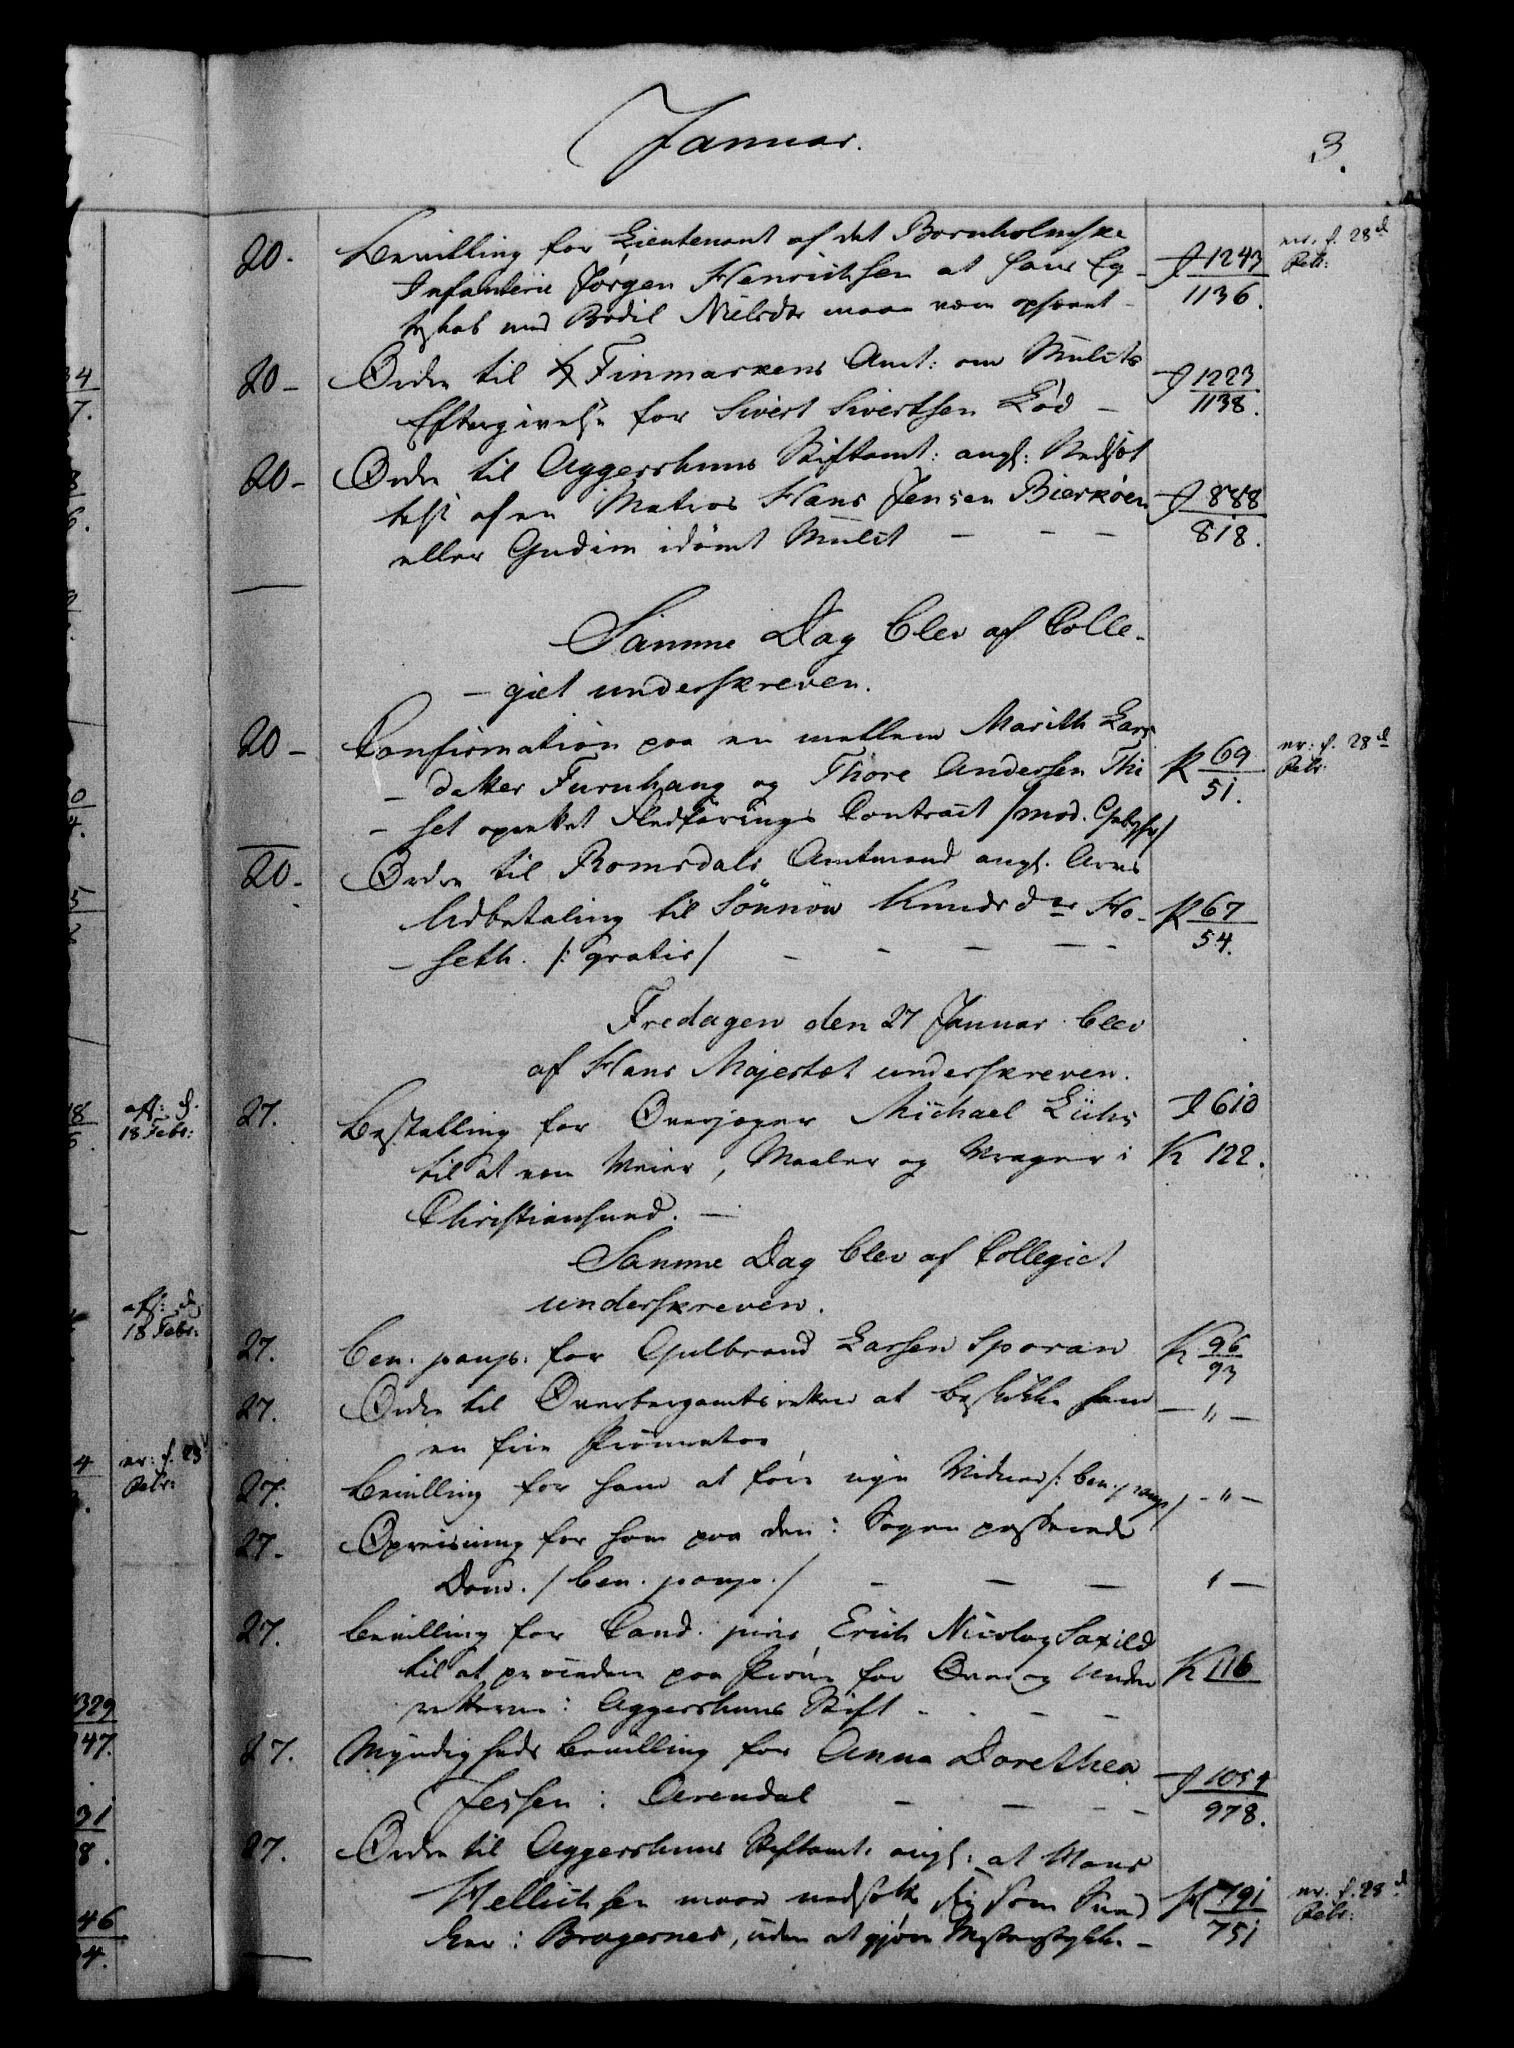 Januar.
3.
20. Bevilling for Lieutenant af det Bornholmske
Infanterie Jørgen Henrichsen at hans Eg-
teskab med Bodil Nielsdr maa være ophævet - J 1243/1136. er: f. 28d Febr:
20 - Ordre til Finmarkens Amt: om Mulcts
Eftergivelse for Sivert Sivertsen Lød - J 1223/1138.
20 - Ordre til Aggershuus Stiftamt: angl: Nedsæt
telse af en Matros Hans Jensen Bierkøen
eller Gudim idømt Mulct - - - J 888/818.
Samme Dag blev af Colle-
- giet underskreven.
20 - Confirmation paa en mellem Marith Lars
- datter Furuhaug og Thore Andersen Thi
- set oprettet Fledførings Contract /mod. Gebyhr/ K 69/51. er: f. 28d Febr:
20. Ordre til Romsdals Amtmand angl. Arvs
Udbetaling til Sønnøv Knudsdr Ho-
- seth. /: gratis/ - - - - K 67/54.
Fredagen den 27 Januar blev
af Hans Majestæt underskreven.
aff: d. 18 Febr:
27. Bestalling for Overjæger Michael Lühr
til at være Veier, Maaler og Vrager i
Christiansund. - J 610 K 122.
Samme Dag blev af Collegiet
underskreven.
aff: d. 18 Febr:
27. Ben. paup. for Gulbrand Larsen Sporan K 96/93
27. Ordre til Overbergamtsretten at beskikke ham
en frie Procurator - " -
er: f. 28 Febr:
27. Bevilling for ham at føre nye Vidner /: ben. paup/ - " -
27 - Opreisning for ham paa den i Sagen passerede
Dom. / ben. paup. / - - - " -
27. Bevilling for Cand. juris Erich Nicolay Saxild
til at procedere paa Prøve for Over og Under
retterne i Aggershuus Stift - - - - K 116
27. Myndigheds Bevilling for Anna Dorethea
Jessen i Arendal - - - - J 1054/978.
27. Ordre til Aggershuus Stiftamt: angl: at Mons
Hellichsen maae nedsætte sig som Sned
ker i Bragernes, uden at gjøre Mesterstykke - K 791/751 er. f. 28d Febr:
34
7.
18
329
47.
31
8.
46
4.